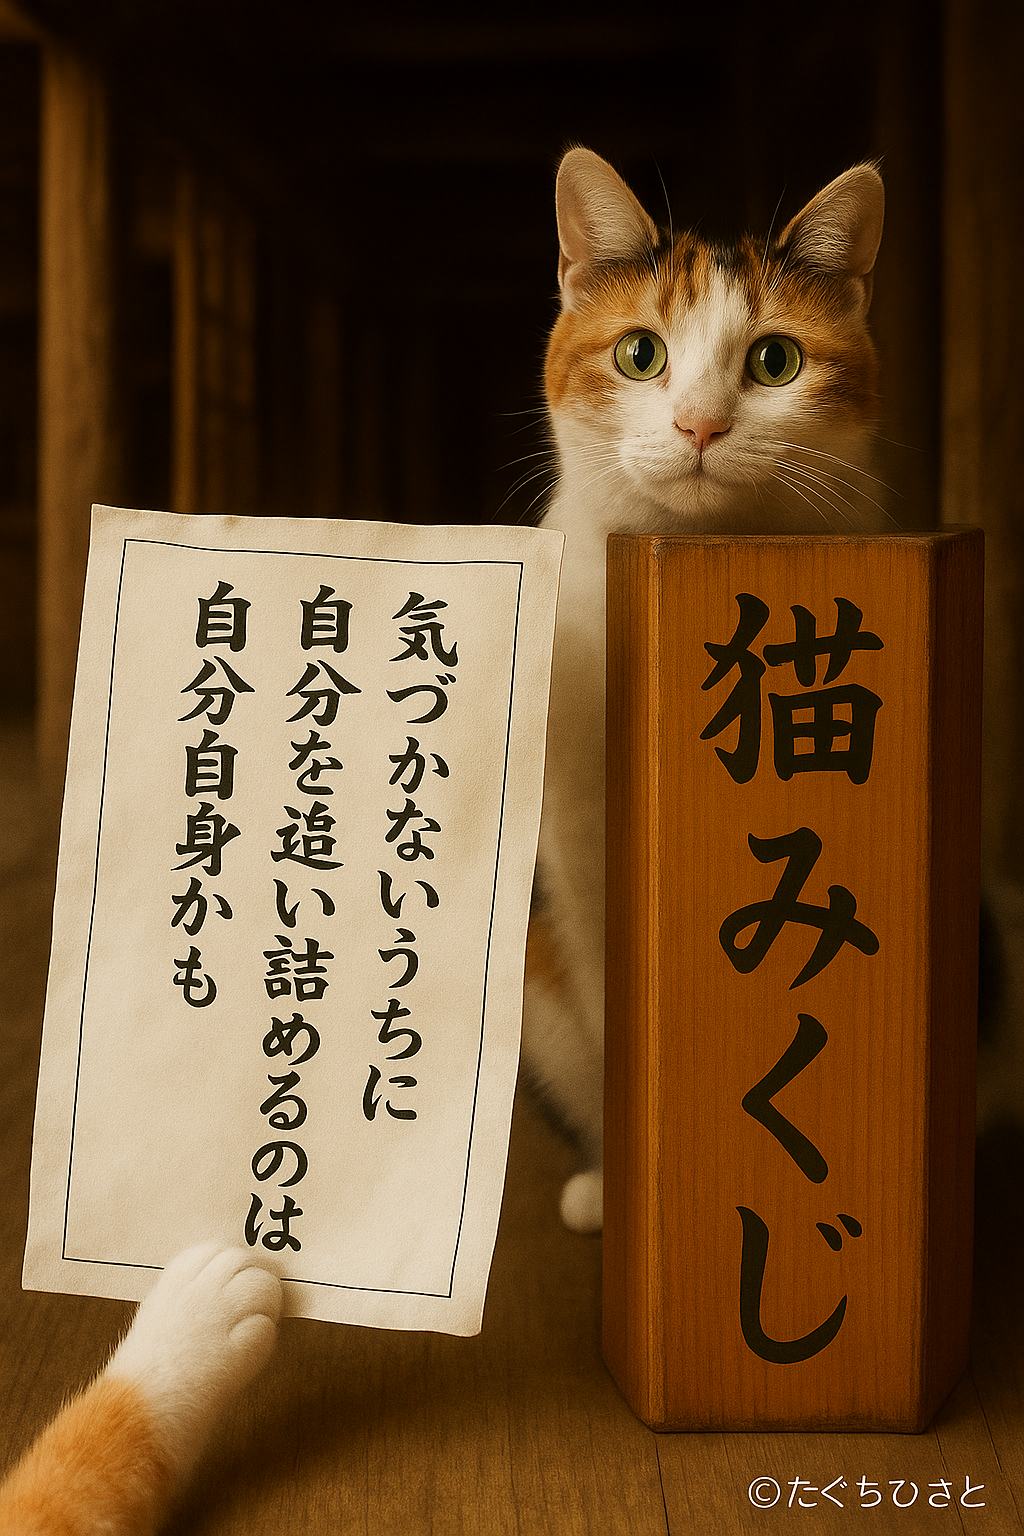 気づかないうちに
自分を追い詰めるのは
自分自身かも
猫みくじ
©たぐちひさと